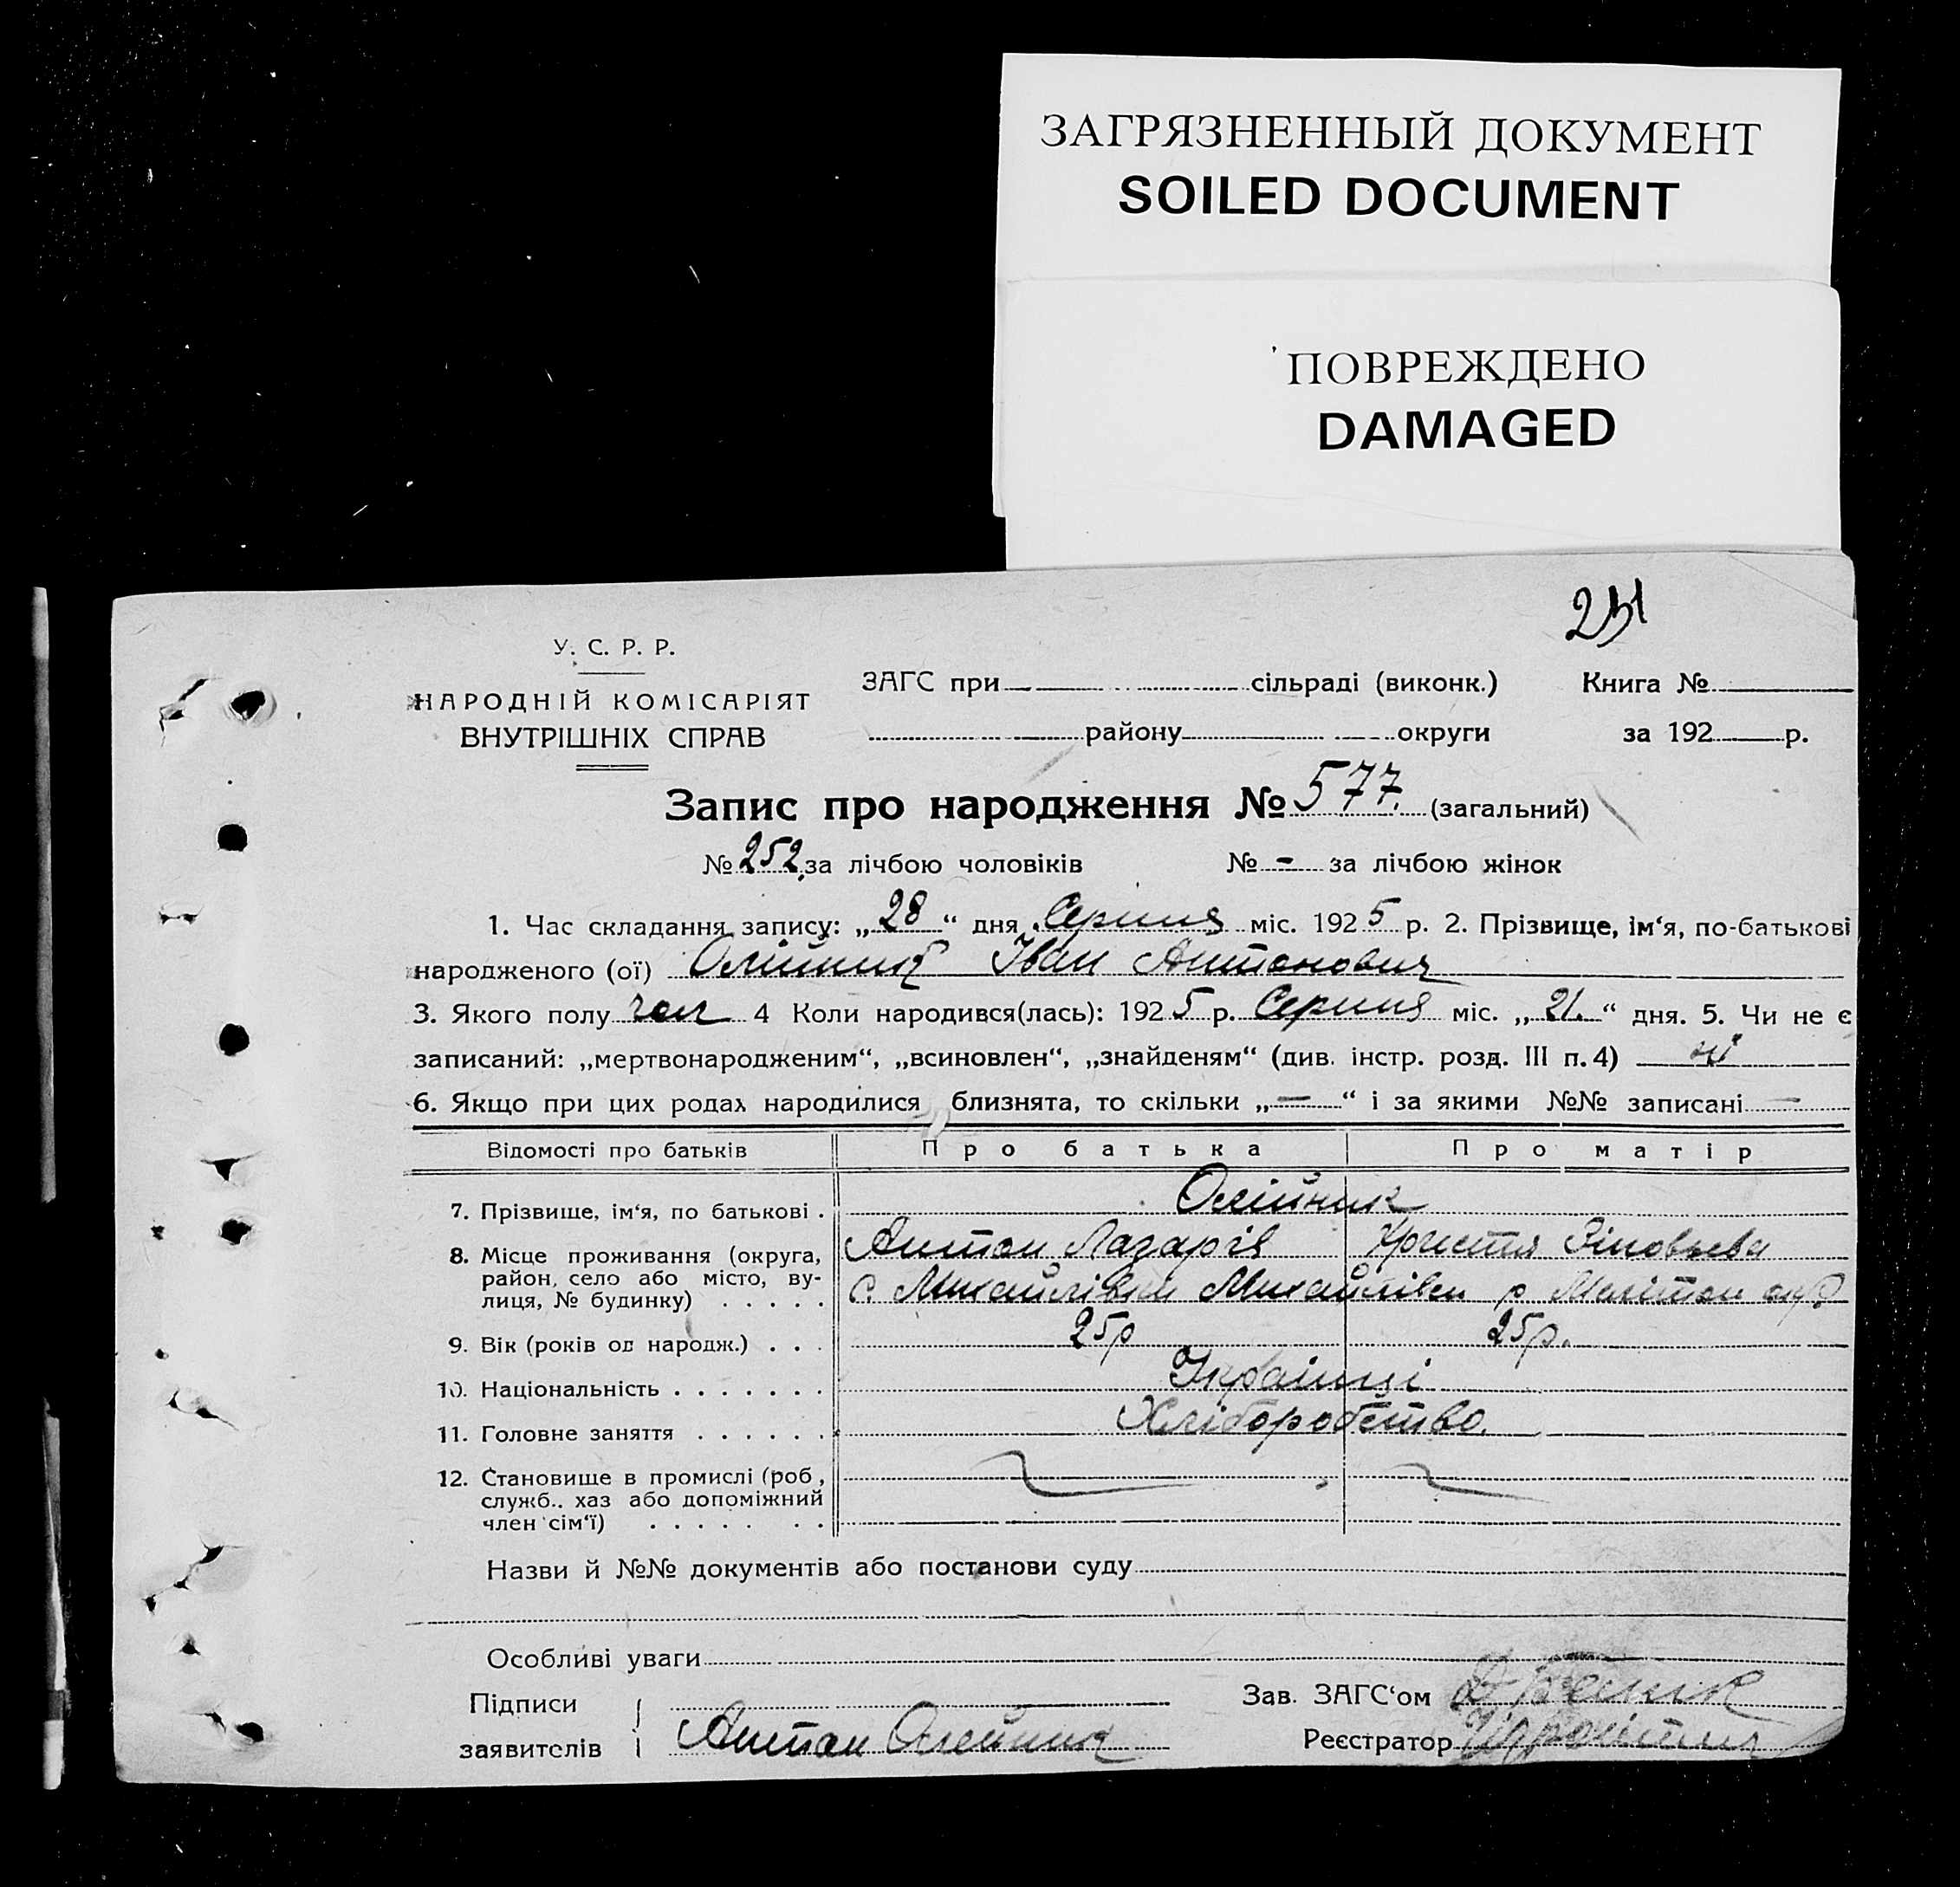 ЗАГРЯЗНЕННЫЙ ДОКУМЕНТ
SOILED DOCUMENT
ПОВРЕЖДЕНО
DAMAGED
251
У. С. Р. Р.
НАРОДНІЙ КОМІСАРІЯТ
ВНУТРІШНІХ СПРАВ
ЗАГС при сільраді (виконк.) Книга №
району округи за 192 р.
Запис про народження № 577. (загальний)
№ 252 за лічбою чоловіків № – за лічбою жінок
1. Час складання запису: „28“ дня Серпня міс. 1925 р. 2. Прізвище, ім‘я, по-батькові
народженого (ої) Олійник Іван Антонович
3. Якого полу чол 4 Коли народився(лась): 1925 р. Серпня міс. „21.“ дня. 5. Чи не є
записаний: „мертвонародженим“, „всиновлен“, „знайденям“ (див. інстр. розд. III п. 4) ні
6. Якщо при цих родах народилися близнята, то скільки „—“ і за якими №№ записані —
Відомості про батьків Про батька Про матір
7. Прізвище, ім‘я, по батькові . Олійник
Антон Лазарів Христя Зіновьева
8. Місце проживання (округа,
район, село або місто, ву-
лиця, № будинку) . . . . . с. Михайлівки Михайлівськ р. Мелітоп окр
9. Вік (років од народж.) . . . 25р 25р.
10. Національність . . . . . . . Українці
11. Головне заняття . . . . . . Хліборобство.
12. Становище в промислі (роб,
служб., хаз або допоміжний
член сім‘ї) . . . . . . .
Назви й №№ документів або постанови суду
Особливі уваги
Підписи Зав. ЗАГС‘ом
заявителів Антон Олейник Реєстратор